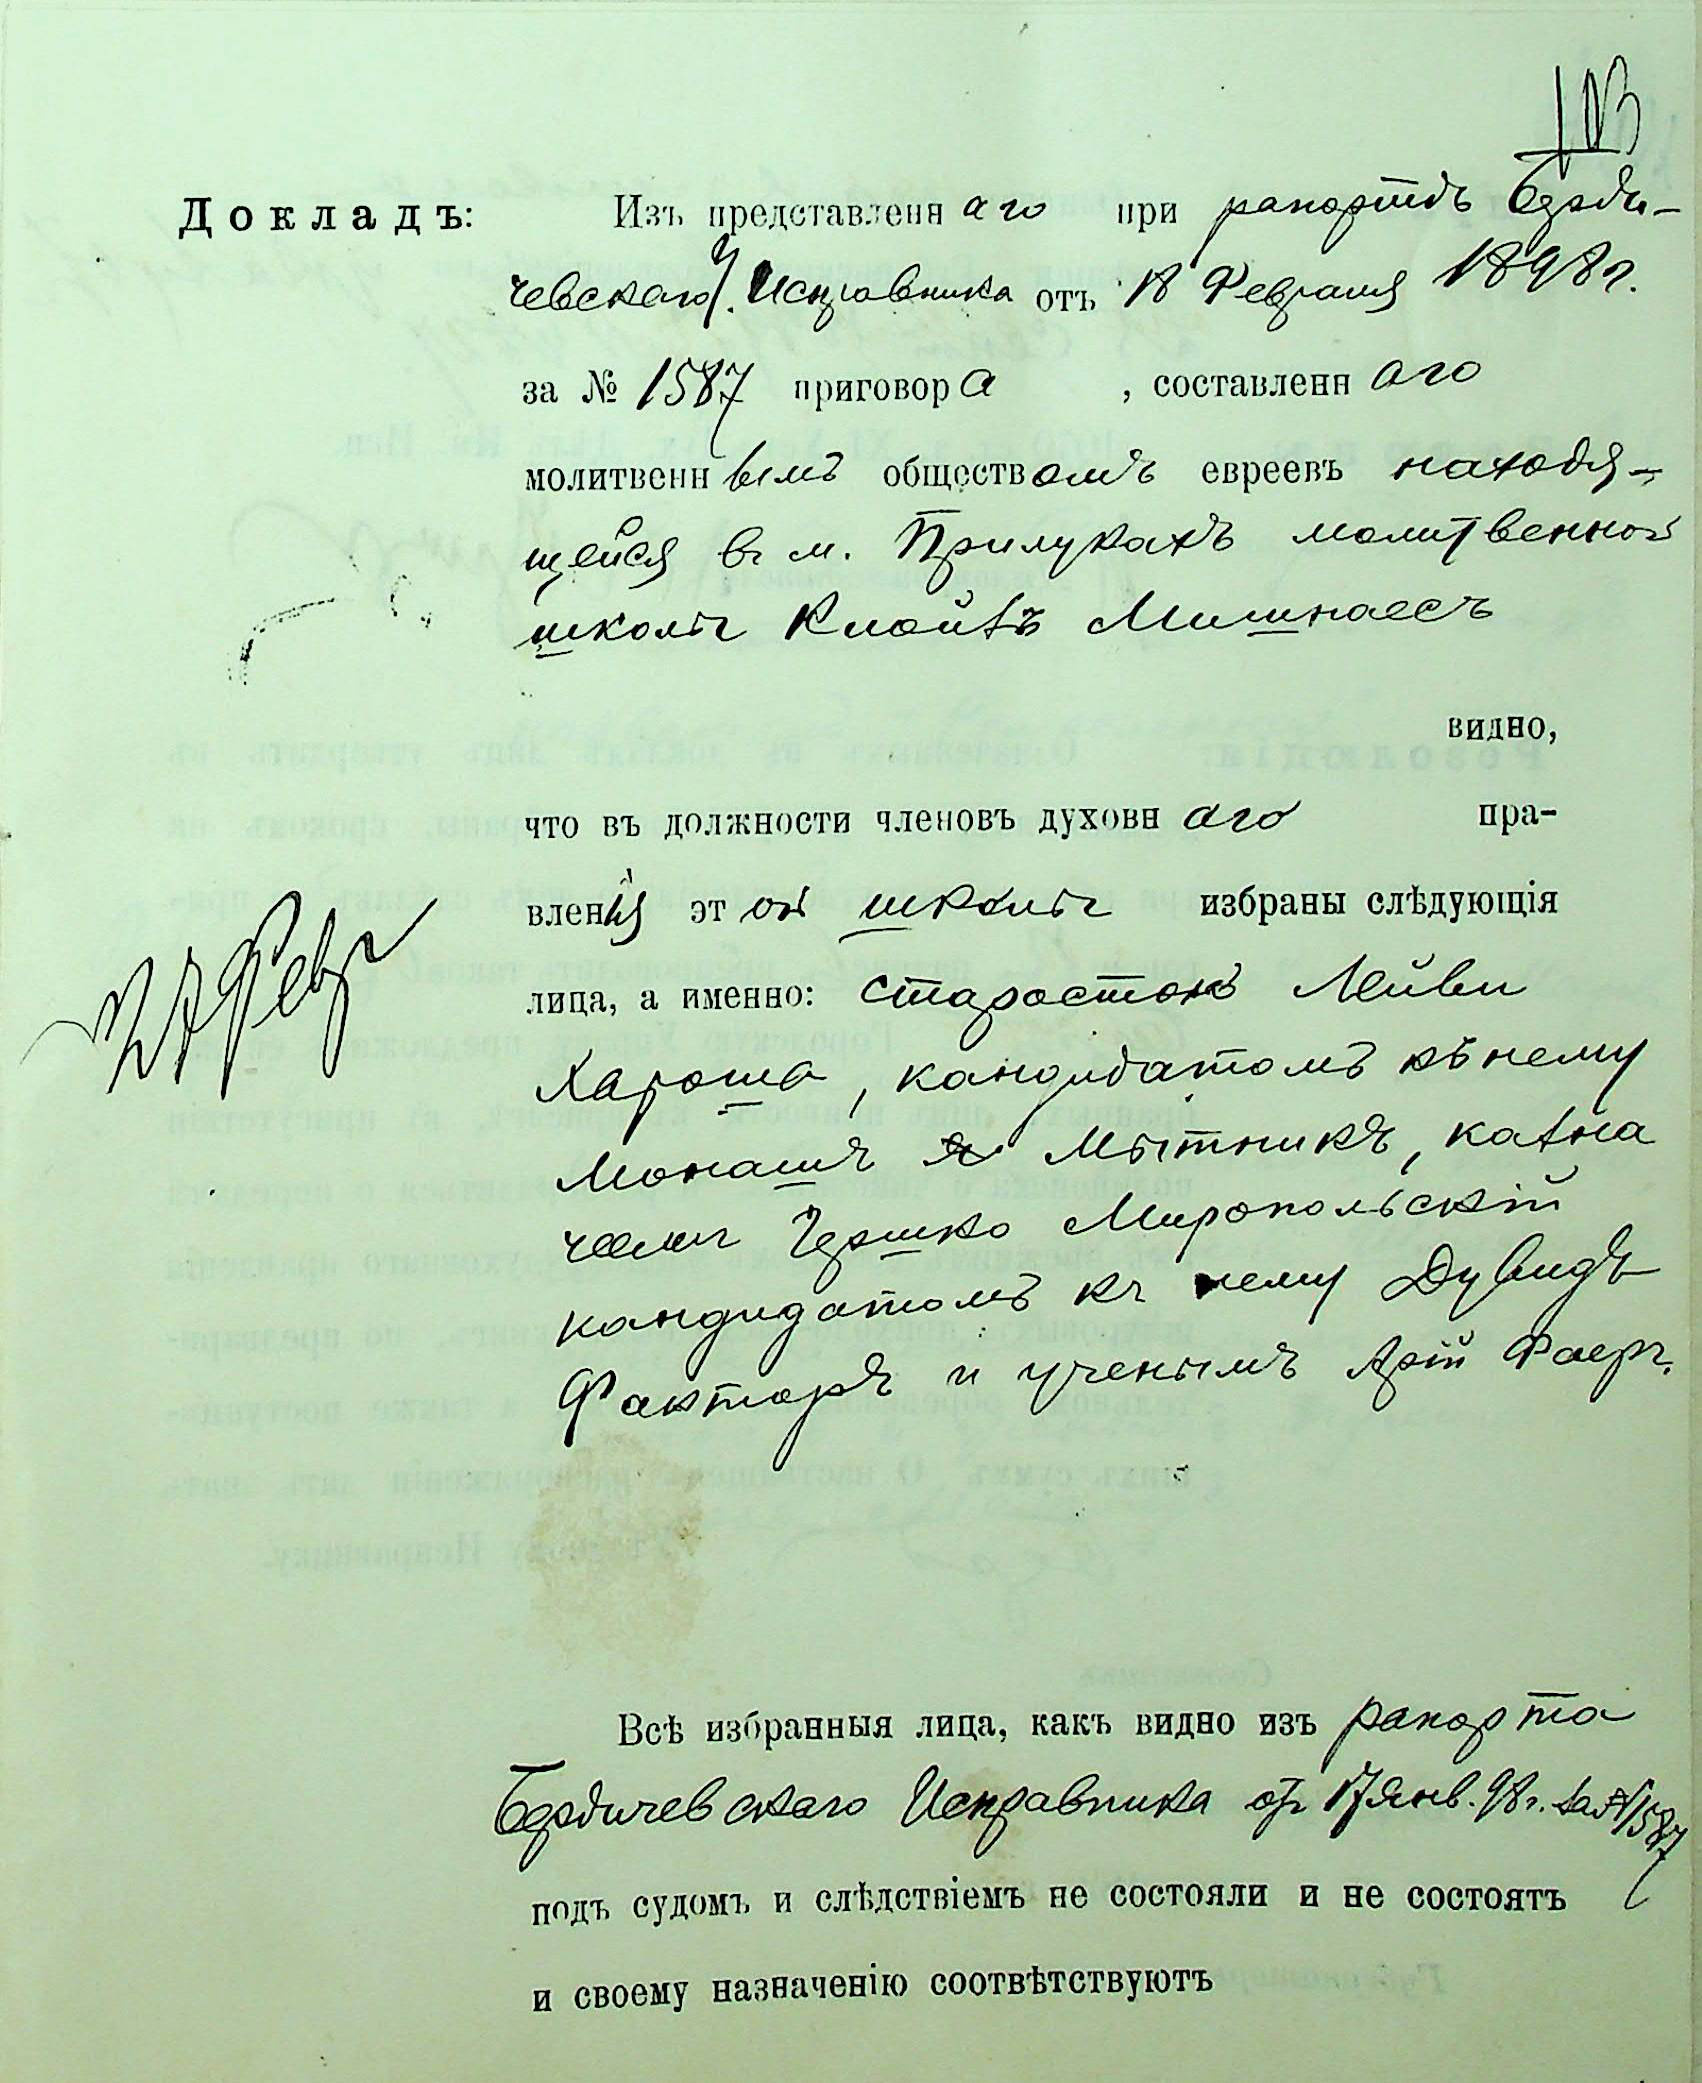 103
Докладъ: Изъ представленнаго при рапортѣ Берди-
чевскаго У. Исправника отъ 18 Февраля 1898 г.
за № 1587 приговора, составленнаго
молитвеннымъ обществомъ евреевъ находя-
щейся въ м. Прилукахъ молитвенной
школы Клойзъ Мишнаесъ
видно,
что въ должности членовъ духовнаго пра-
вленія этой школы избраны слѣдующія
лица, а именно: старостою Лейви
Хароша, кандидатомъ къ нему
Монашъ Мытникъ, казна
чеемъ Гершко Миропольскій
кандидатомъ къ нему Дувидъ
Факторъ и ученымъ Арій Фаеръ.
24 Февр
Всѣ избранныя лица, какъ видно изъ рапорта
Бердичевскаго Исправника отъ 17 Янв. 98 г. за № 1587
подъ судомъ и слѣдствіемъ не состояли и не состоятъ
и своему назначенію соотвѣтствуютъ